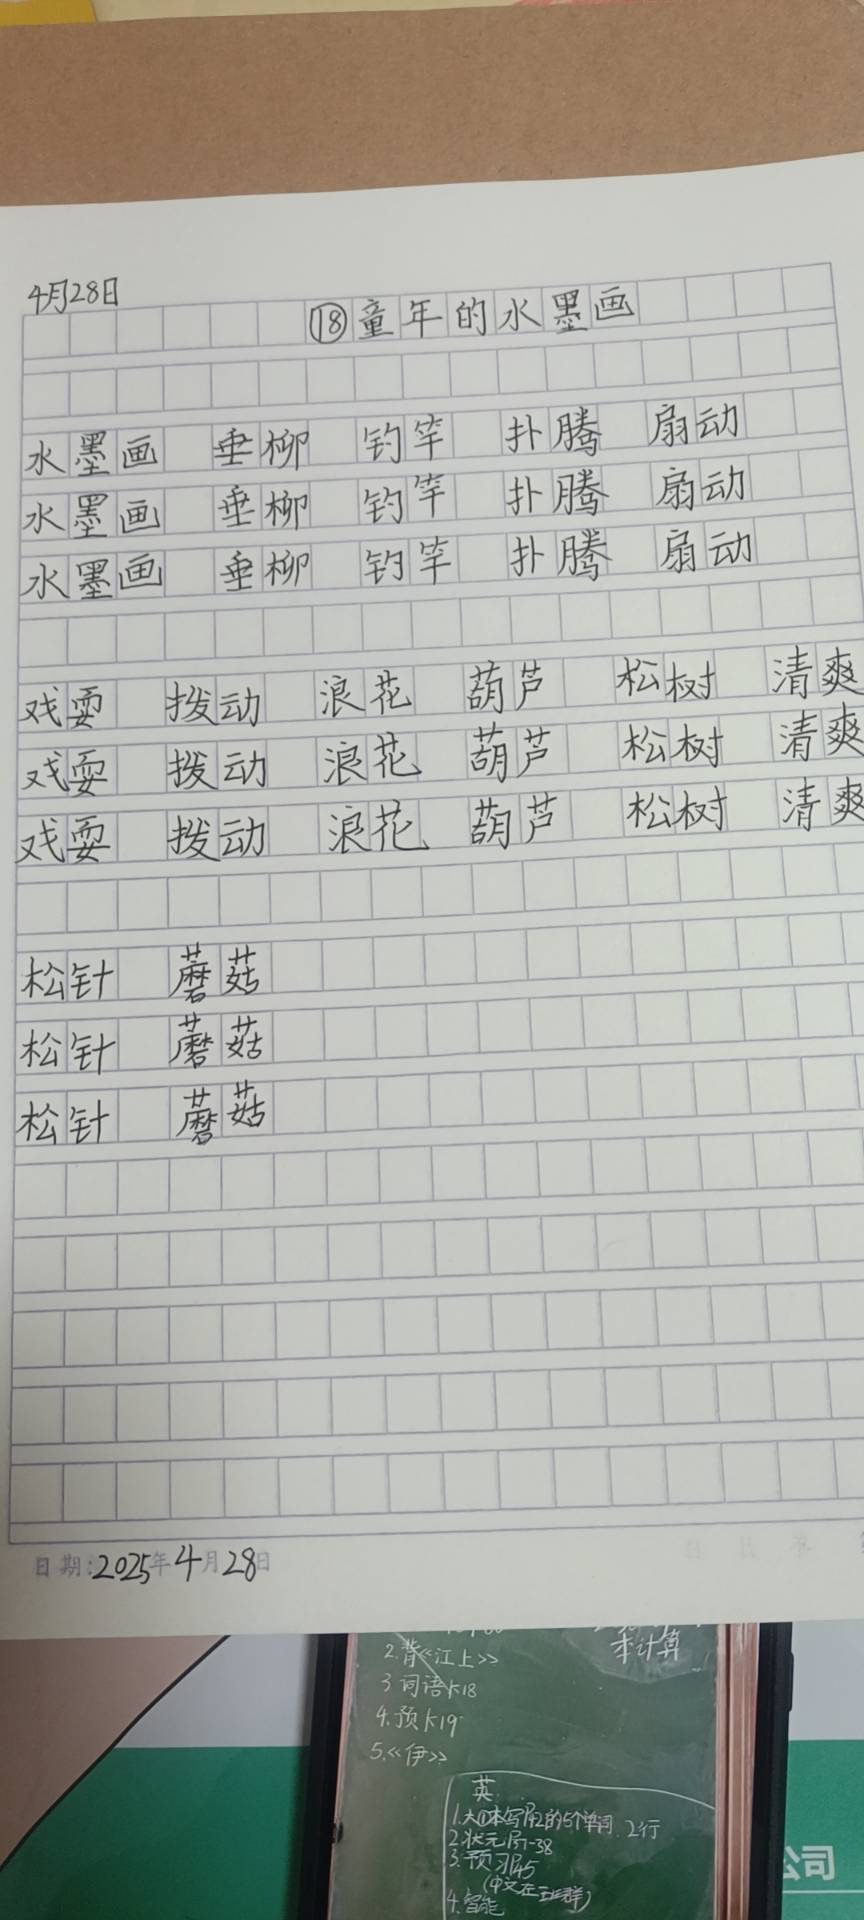 4月28日
⑱童年的水墨画
水墨画 垂柳 钓竿 扑腾 扇动
水墨画 垂柳 钓竿 扑腾 扇动
水墨画 垂柳 钓竿 扑腾 扇动
戏耍 拨动 浪花 葫芦 松树 清爽
戏耍 拨动 浪花 葫芦 松树 清爽
戏耍 拨动 浪花 葫芦 松树 清爽
松针 蘑菇
松针 蘑菇
松针 蘑菇
日期:2025年4月28日
本计算
2.背《江上》
3 词语k18
4.预k19
5.《伊》
英
1.大①本写 的5个单词.2行
2.状元 -38
3.预习P45
(中文在 群)
4.智能
公司